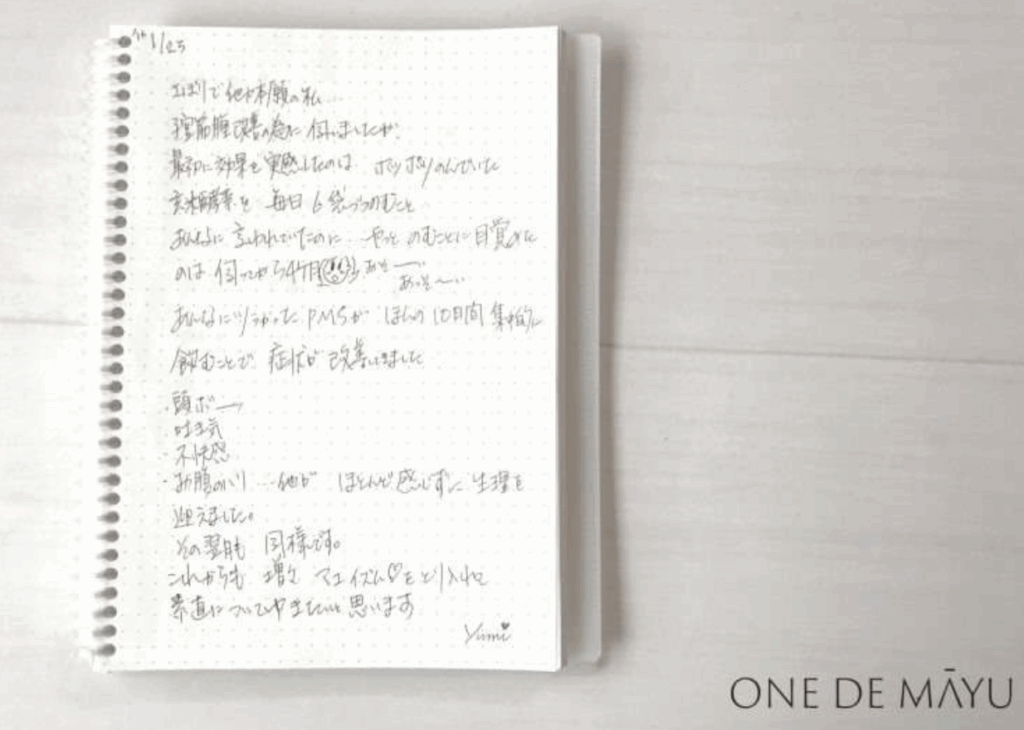 1/25
ずぼらで他力本願の私…
子宮筋腫改善の為に伺いましたが、
最初に効果を実感したのは、ポツポツのんでいた
玄米酵素を 毎日 6袋づつのむこと
あんなに言われていたのに… やっと のむことに目覚めた
のは 伺ってから4ヶ月
あんなにツラかった PMSが ほんの10日間 集中的に
飲むことで 症状が 改善してきました
・頭ボーッ
・吐き気
・不快感
・お腹のハリ …他が ほとんど感じずに 生理を
迎えました。
その翌月も 同様です。
これからも 増々 マユイズム♡をとり入れて
素直についてゆきたいと思います
Yumi♥
ONE DE MĀYU